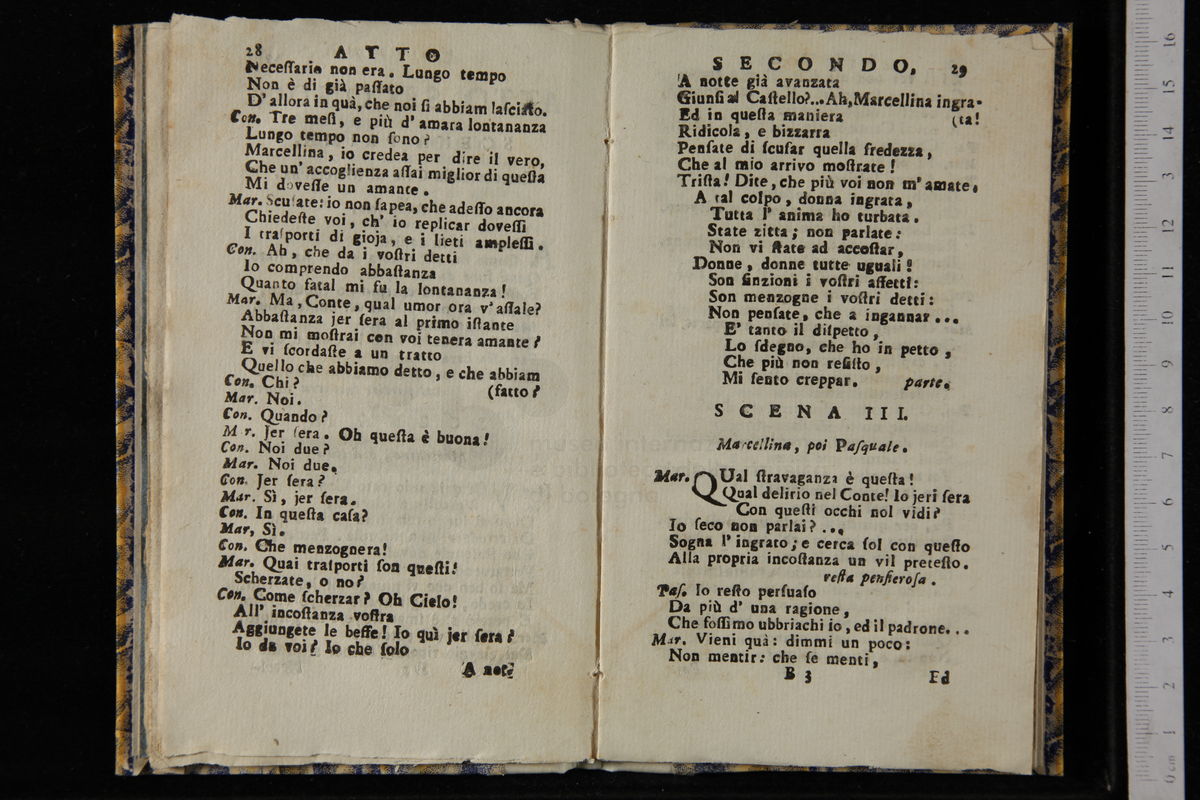 28 ATTO
Neceſſaria non era. Lungo tempo
Non è di già paſſato
D'allora in quà, che noi ſi abbiam laſciato.
Con. Tre meſi, e più d'amara lontananza
Lungo tempo non ſono?
Marcellina, io credea per dire il vero,
Che un'accoglienza aſſai miglior di queſta
Mi doveſſe un amante.
Mar. Scuſate: io non ſapea, che adeſſo ancora
Chiedeſte voi, ch'io replicar doveſſi
I traſporti di gioja, e i lieti ampleſſi.
Con. Ah, che da i voſtri detti
Io comprendo abbaſtanza
Quanto fatal mi fu la lontananza!
Mar. Ma, Conte, qual umor ora v'aſſale?
Abbaſtanza jer ſera al primo iſtante
Non mi moſtrai con voi tenera amante?
E vi ſcordaſte a un tratto
Quello che abbiamo detto, e che abbiam
Con. Chi? (fatto?
Mar. Noi.
Con. Quando?
M r. Jer ſera. Oh queſta è buona!
Con. Noi due?
Mar. Noi due.
Con. Jer ſera?
Mar. Sì, jer ſera.
Con. In queſta caſa?
Mar, Sì.
Con. Che menzognera!
Mar. Quai traſporti ſon queſti!
Scherzate, o no?
Con. Come ſcherzar? Oh Cielo!
All' incoſtanza voſtra
Aggiungete le beffe! Io quì jer ſera?
Io da voi? Io che ſolo
A not-
SECONDO, 29
A notte già avanzata
Giunſi al Caſtello?... Ah, Marcellina ingra-
Ed in queſta maniera (ta!
Ridicola, e bizzarra
Penſate di ſcuſar quella fredezza,
Che al mio arrivo moſtrate!
Triſta! Dite, che più voi non m'amate.
A tal colpo, donna ingrata,
Tutta l'anima ho turbata.
State zitta; non parlate:
Non vi ſtate ad accoſtar,
Donne, donne tutte uguali!
Son finzioni i voſtri affetti:
Son menzogne i voſtri detti:
Non penſate, che a ingannar...
E' tanto il diſpetto,
Lo ſdegno, che ho in petto,
Che più non reſiſto,
Mi ſento creppar. parte.
SCENA III.
Marcellina, poi Paſquale.
Mar. QUal ſtravaganza è queſta!
Qual delirio nel Conte! Io jeri ſera
Con queſti occhi nol vidi?
Io ſeco non parlai?...
Sogna l'ingrato; e cerca ſol con queſto
Alla propria incoſtanza un vil preteſto.
reſta penſieroſa.
Paſ. Io reſto perſuaſo
Da più d'una ragione,
Che foſſimo ubbriachi io, ed il padrone...
Mar. Vieni quà: dimmi un poco:
Non mentir: che ſe menti,
B 3 Ed